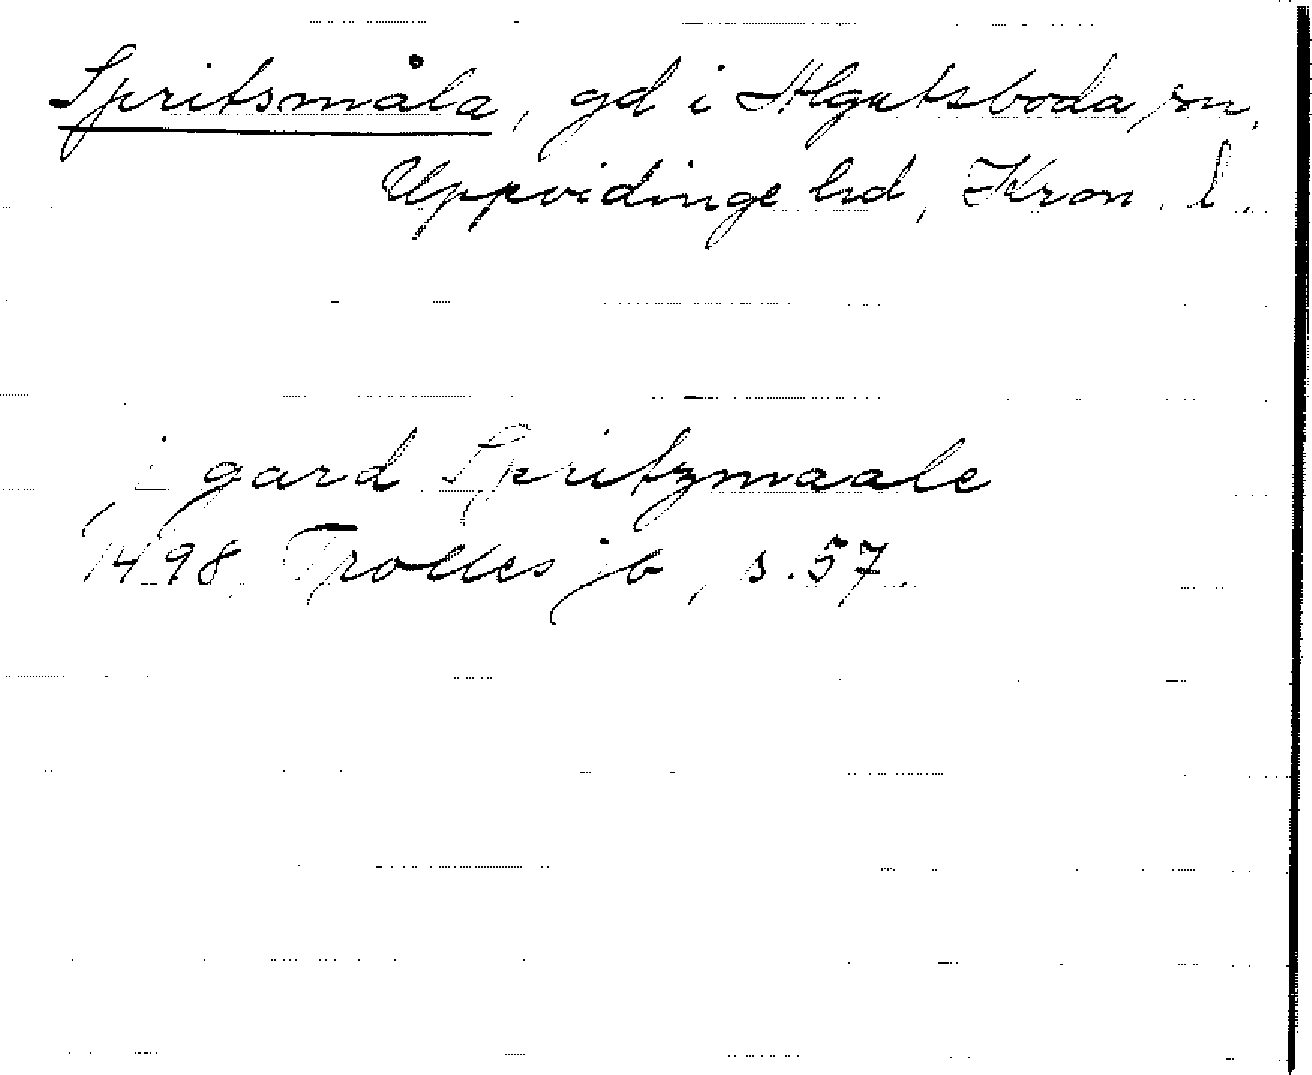 Spritsmåla, gd i Algutsboda sn,
Uppvidinge hd, Kron. l.
j gard Spritzmaale
1498, Trolles jb, s. 57.